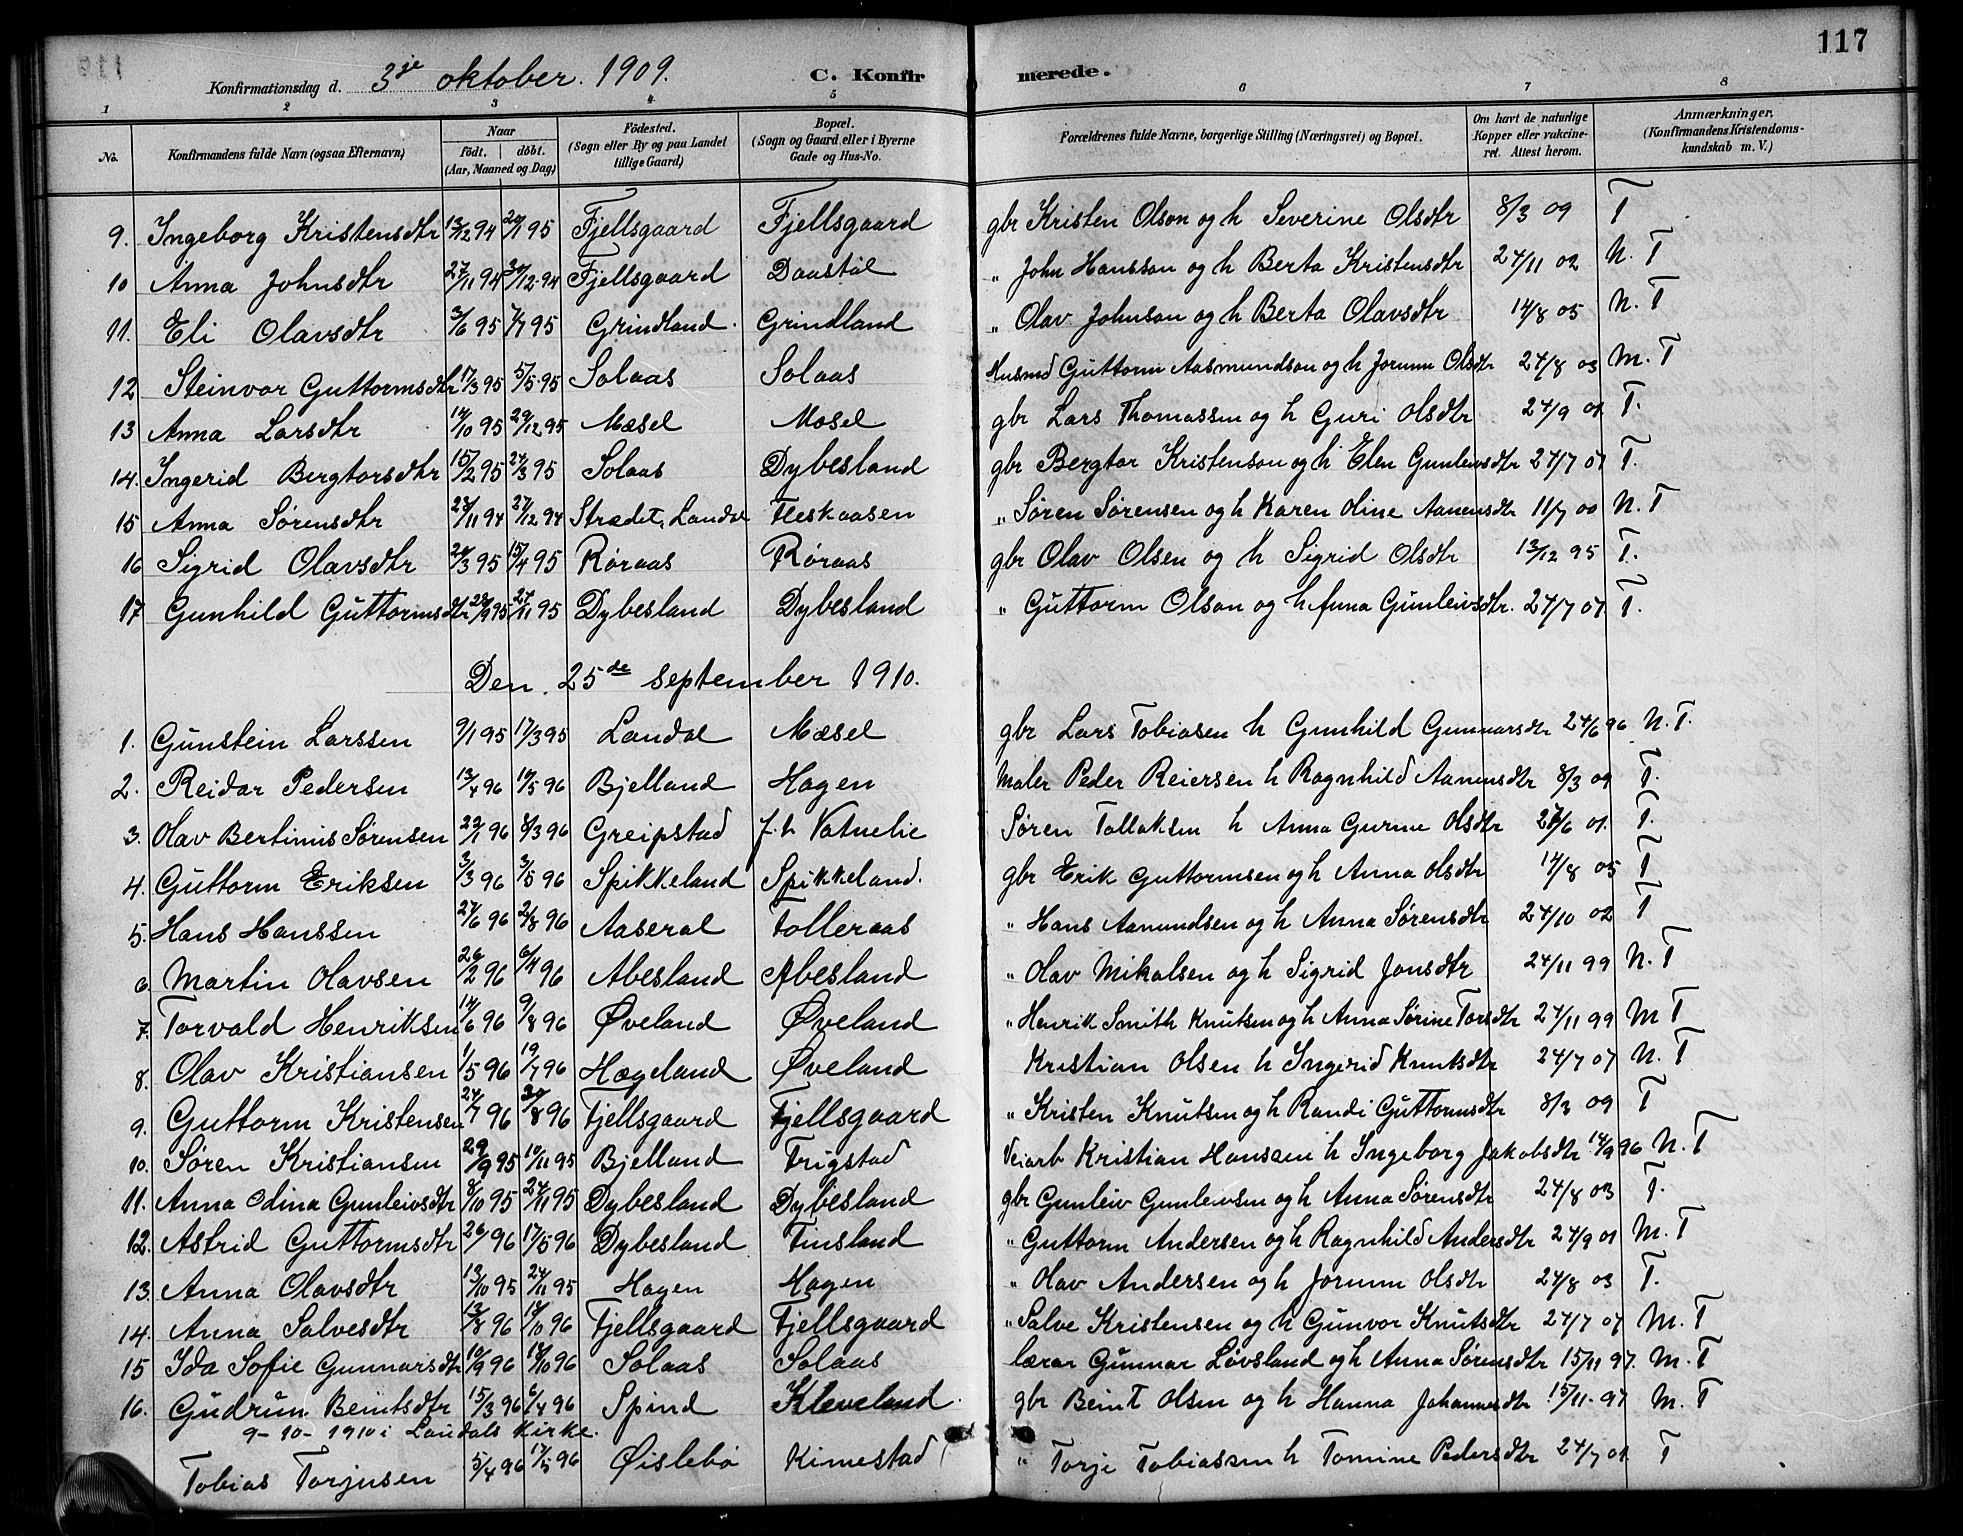 117
Konfirmationsdag d. 3je oktober. 1909. C. Konfirmerede.
1 2 3 4 5 6 7 8
No. Konfirmandens fulde Navn (ogsaa Efternavn) Naar födt. döbt. (Aar, Maaned og Dag) Födested. (Sogn eller By og paa Landet tillige Gaard) Bopæl. (Sogn og Gaard eller i Byerne Gade og Hus-No. Forældrenes fulde Navne, borgerlige Stilling (Næringsvei) og Bopæl. Om havt de naturlige Kopper eller vakcineret. Attest herom. Anmærkninger. (Konfirmandens Kristendomskundskab m. V.)
9. Ingeborg Kristensdtr 13/12 94 20/1 95 Fjellsgaard Fjellsgaard gbr Kristen Olson og h Severine Olsdtr 8/3 09 T
10 Anna Johnsdtr 27/11 94 30/12.94 Fjellsgaard Daastøl " John Hansson og h Berta Kristensdtr 24/11 02 N. T
11. Eli Olavsdtr 3/6 95 7/7 95 Grindland. Grindland " Olav Johnson og h Berta Olavsdtr 14/8 05 N. T
12 Steinvor Guttormsdtr 17/3 95 5/5.95 Solaas Solaas Husmd Guttorm Aasmundson og h Jorunn Olsdtr 24/8 03 M. T
13 Anna Larsdtr 14/10 95 29/12 95 Mæsel Mæsel gbr Lars Thomassen og h Guri Olsdtr 24/9 01 T.
14. Ingerid Bergtorsdtr 15/2 95 24/3 95 Solaas Dybesland gbr Bergtor Kristenson og h Elen Gunleivsdtr 24/7 07 T.
15 Anna Sørensdtr 28/11 94 27/12 94 Strædet, Landal Fleskaasen " Søren Sørensen og h Karen Oline Aanensdtr 11/7 00 N. T
16 Sigrid Olavsdtr 20/3 95 15/4 95 Røraas Røraas gbr Olav Olsen og h Sigrid Olsdtr 13/12 95 T.
17 Gunhild Guttormsdtr 28/9 95 27/11 95 Dybesland Dybesland " Guttorm Olson og h Anna Gunleivsdtr. 24/7 07 T.
Den 25de september 1910.
1. Gunstein Larssen 9/1 95 17/3 95 Landal Mæsel gbr Lars Tobiasen h Gunhild Gunnarsdtr 24/6 96 N. T.
2. Reidar Pedersen 13/4 96 10/5 96 Bjelland Hagen Maler Peder Reiersen h Ragnhild Aanensdtr 8/3 09 T.
3. Olav Bertinius Sørensen 22/1 96 8/3 96 Greipstad f.h Vatnelie Søren Tallaksen h Anna Gurine Olsdtr 27/6 01. T.
4. Guttorm Eriksen 3/3 96 3/5 96 Spikkeland Spikkeland. gbr Erik Guttormsen og h Anna Olsdtr 14/8 05 T
5. Hans Hanssen 27/6 96 2/8 96 Aaseral Tolleraas " Hans Aanundsen og h Anna Sørensdtr 24/10 02 T
6 Martin Olavsen 26/2 96 6/4 96 Abesland Abesland " Olav Mikalsen og h Sigrid Jonsdtr 24/11 99 N. T
7. Torvald Henriksen 14/6 96 9/8 96 Øveland Øveland " Henrik Smith Knutsen og h Anna Sørine Torsdtr 24/11 99 M T
8. Olav Kristiansen 1/5 96 19/7 96 Hægeland Øveland Kristian Olsen h Ingerid Knutsdtr 24/7 07 N. T
9. Guttorm Kristensen 24/7 96 30/8 96 Fjellsgaard Fjellsgaard " Kristen Knutsen og h Randi Guttormsdtr 8/3 09 T
10. Søren Kristiansen 29/9 95 10/11 95 Bjelland Trigstad Veiarb Kristian Hanssen h Ingeborg Jakobsdtr 14/9 96 N. T
11. Anna Odina Gunleivsdtr 8/10 95 24/11 95 Dybesland Dybesland gbr Gunleiv Gunleivsen og h Anna Sørensdtr 24/8 03 T.
12. Astrid Guttormsdtr 26/ 96 17/5 96 Dybesland Finsland " Guttorm Andersen og h Ragnhild Andersdtr 24/9 01 M. T
13. Anna Olavsdtr 13/10 95 24/11 95 Hagen Hagen " Olav Andersen og h Jorunn Olsdtr 24/8 03 T.
14. Anna Salvesdtr 13/8 96 14/10 96 Fjellsgaard Fjellsgaard " Salve Kristensen og h Gunvor Knutsdtr 24/7 07 M. T
15 Ida Sofie Gunnarsdtr 10/9 96 18/10 96 Solaas Solaas lærar Gunnar Løvsland og h Anna Sørensdtr 15/11 97. M. T
16. Gudrun Beintsdtr 15/3 96 6/4 96 Spind Kleveland. gbr Beint Olsen og h Hanna Johannesdtr 15/11-97 M. T
9-10-1910 i Laudals Kirke.
Tobias Torjusen 5/4 96 17/5 96 Øislebø Kimestad " Torje Tobiassen h Tomine Pedersdtr 24/7 01 T